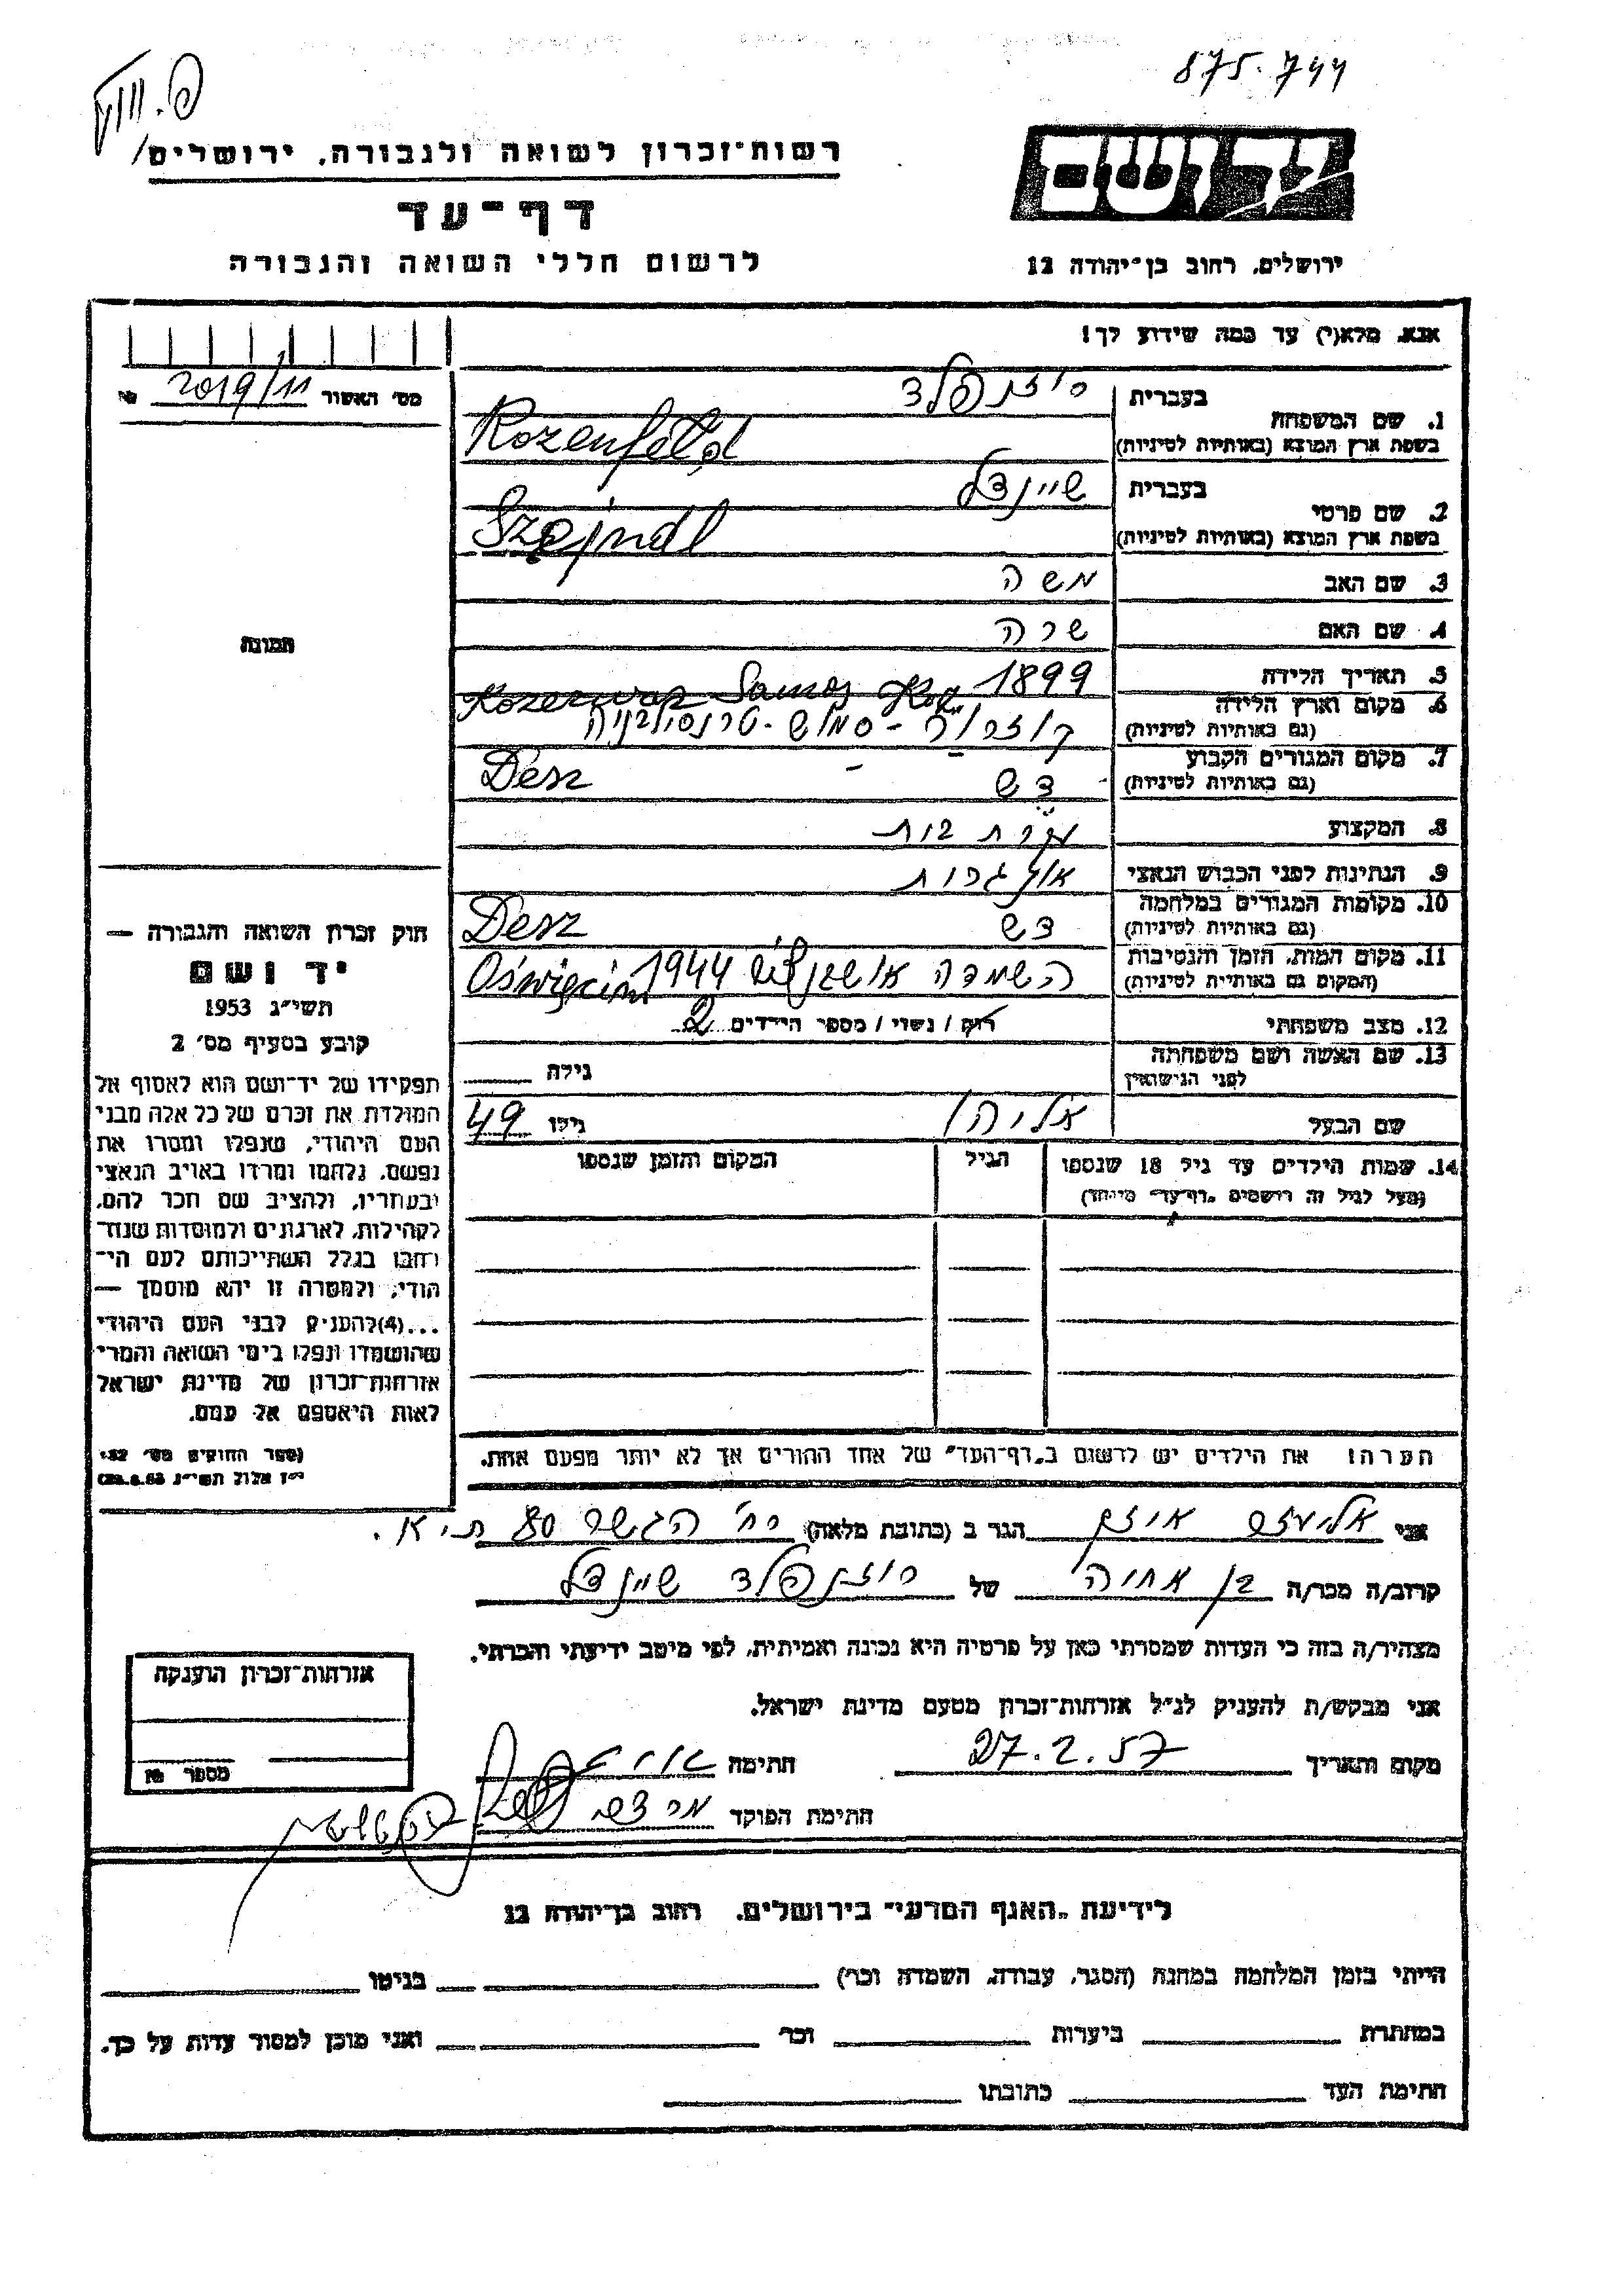 875.744
רשות־זכרון לשואה ולגבורה, ירושלים
דף־עד
לרשום חללי השואה והגבורה
יד ושם
ירושלים, רחוב בן־יהודה 12
אנא, מלא(י) עד כמה שידוע לך!
מס׳ האשור 2019/11 №
בעברית רוזנפלד
1. שם המשפחה
בשפת ארץ המוצא (באותיות לטיניות) Rozenfeld
בעברית שיינדל
2. שם פרטי
בשפת ארץ המוצא (באותיות לטיניות) Szejndl
3. שם האב משה
4. שם האם שרה
5. תאריך הלידה 1899
6. מקום וארץ הלידה Kozerwar Samos
(גם באותיות לטיניות) קוזרור - סמוש - טרנסילבניה
7. מקום המגורים הקבוע
(גם באותיות לטיניות) דש Desz
8. המקצוע עקרת בית
9. הנתינות לפני הכבוש הנאצי הונגרית
10. מקומות המגורים במלחמה
(גם באותיות לטיניות) דש Desz
11. מקום המות, הזמן והנסיבות
(המקום גם באותיות לטיניות) השמדה 1944 Oświęcim
12. מצב משפחתי רוק / נשוי / מספר הילדים 2
13. שם האשה ושם משפחתה
לפני הנישואין גילה
שם הבעל אליהו גילו 49
14. שמות הילדים עד גיל 18 שנספו הגיל המקום והזמן שנספו
(מעל לגיל זה רושמים „דף־עד״ מיוחד)
הערה: את הילדים יש לרשום ב„דף־העד״ של אחד ההורים אך לא יותר מפעם אחת.
תמונה
חוק זכרון השואה והגבורה —
יד ושם
תשי״ג 1953
קובע בסעיף מס׳ 2
תפקידו של יד־ושם הוא לאסוף אל
המולדת את זכרם של כל אלה מבני
העם היהודי, שנפלו ומסרו את
נפשם, נלחמו ומרדו באויב הנאצי
ובעוזריו, ולהציב שם וזכר להם,
לקהילות, לארגונים ולמוסדות שנח־
רבו בגלל השתייכותם לעם הי־
הודי; ולמטרה זו יהא מוסמך —
...(4) להעניק לבני העם היהודי
שהושמדו ונפלו בימי השואה והמרי
אזרחות־זכרון של מדינת ישראל
לאות היאספם אל עמם.
(ספר החוקים מס׳ 132,
י״ז אלול תשי״ג 28.8.53)
אני אליעזר איזק הגר ב (כתובת מלאה) רח׳ הגשר 80 ת״א.
קרוב/ה מכר/ה בן אחיה של רוזנפלד שיינדל
מצהיר/ה בזה כי העדות שמסרתי כאן על פרטיה היא נכונה ואמיתית, לפי מיטב ידיעתי והכרתי.
אני מבקש/ת להעניק לנ״ל אזרחות־זכרון מטעם מדינת ישראל.
מקום ותאריך 27.2.57 חתימה
חתימת הפוקד
אזרחות־זכרון הוענקה
מספר №
לידיעת „האגף המדעי״ בירושלים, רחוב בן־יהודה 12
הייתי בזמן המלחמה במחנה (הסגר, עבודה, השמדה וכו׳) בגיטו
במחתרת ביערות וכו׳ ואני מוכן למסור עדות על כך.
חתימת העד כתובתו